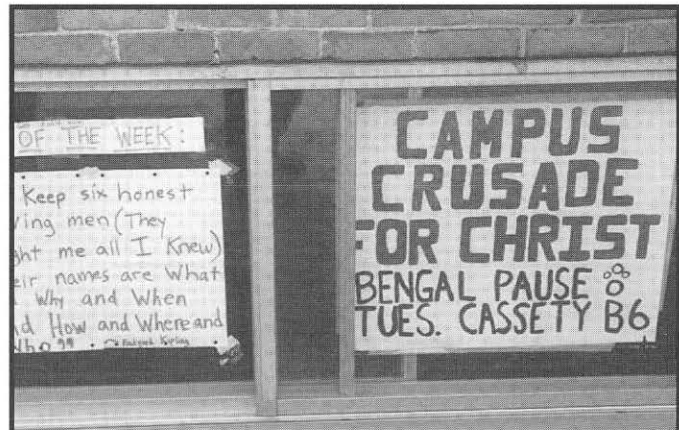 OF THE WEEK:
Keep six honest
ving men (They
ght me all I Knew)
eir names are What
Why and When
nd How and Where and
Who"
Rudyard Kipling
CAMPUS
CRUSADE
FOR CHRIST
BENGAL PAUSE
TUES. CASSETY B6